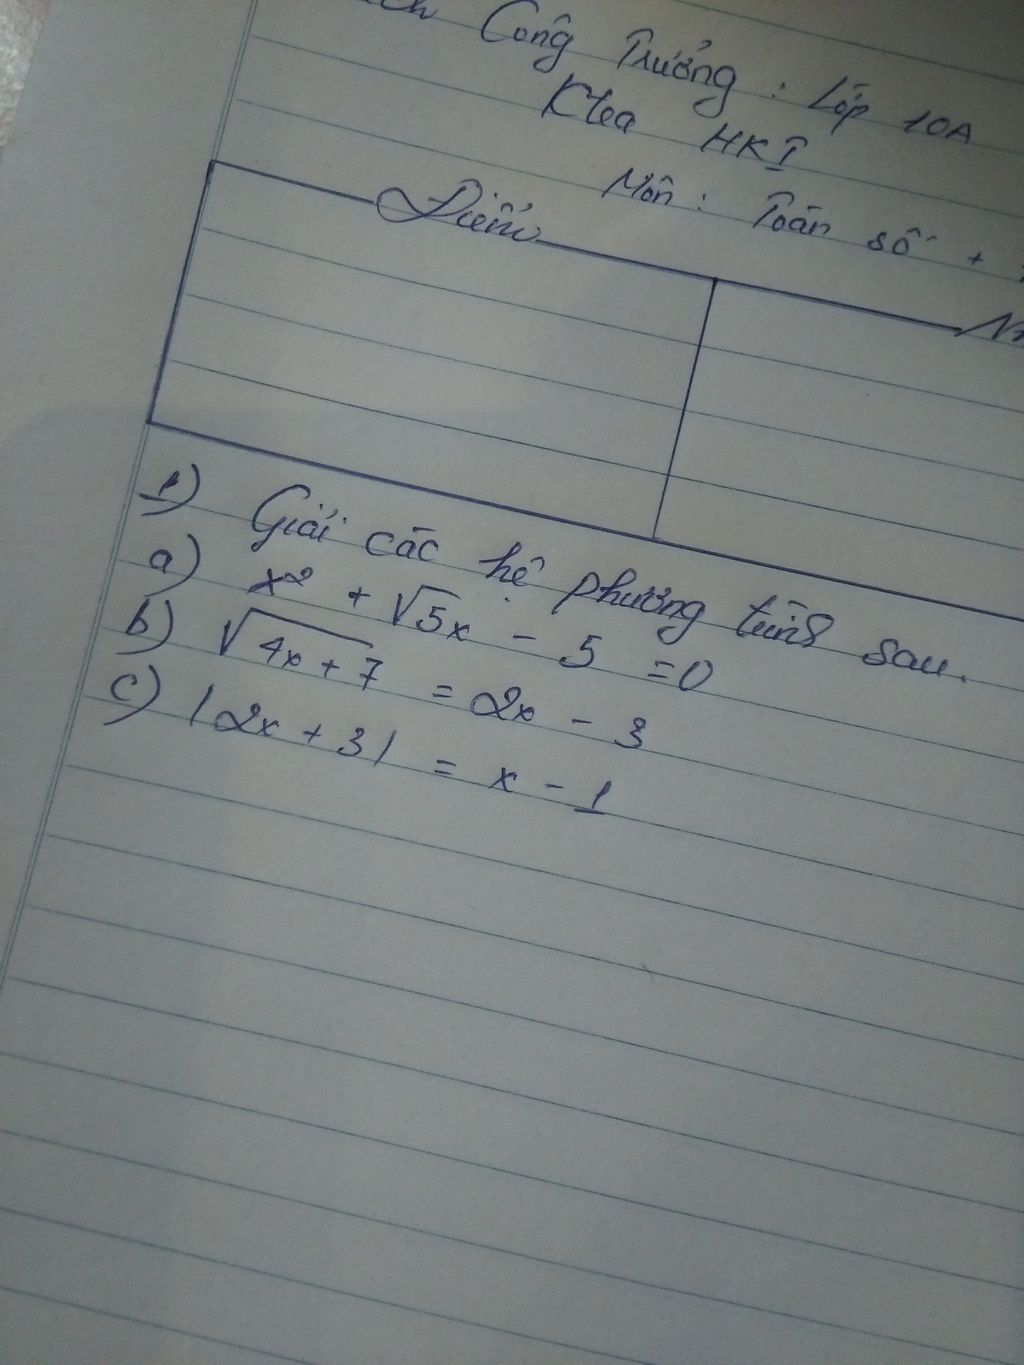 Công Trưởng : Lớp 10A
Ktra HKI
Môn : Toán số +
Điểm
1) Giải các hệ phương trình sau.
a) x² + √5x - 5 = 0
b) √4x + 7 = 2x - 3
c) |2x + 3| = x - 1